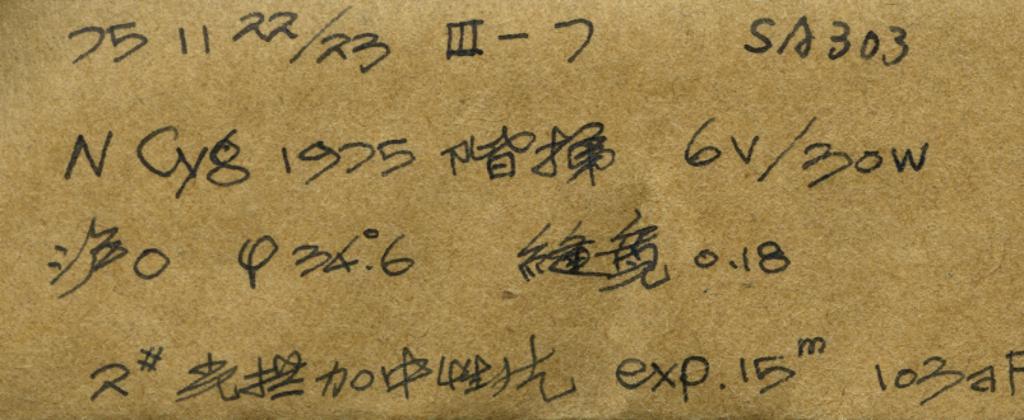 75 11 22/23 III-7 SA303
N Cyg 1975 階梯 6V/30W
沪0 φ34°.6 縫寬 0.18
2# 光攔加中性光 exp.15m 103aF